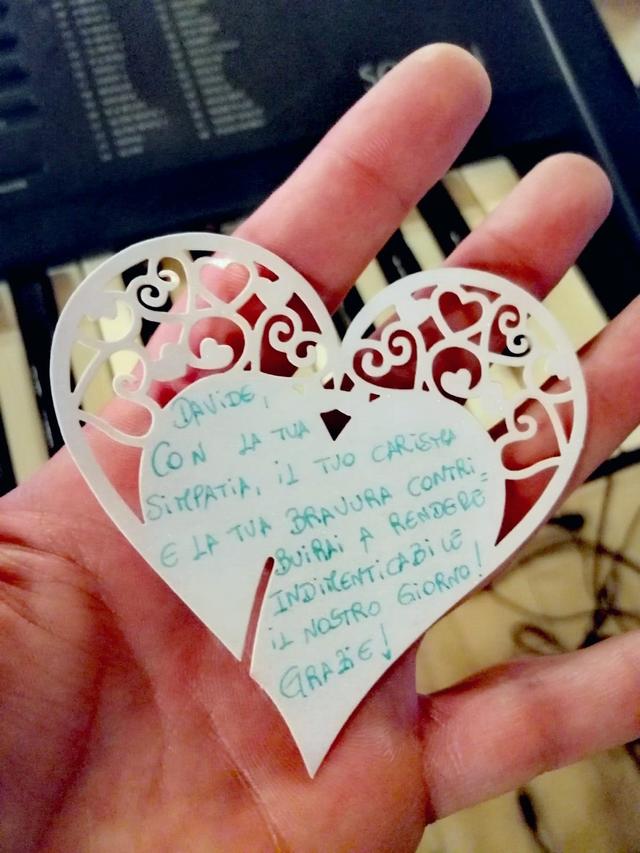 DAVIDE,
CON LA TUA
SIMPATIA, IL TUO CARISMA
E LA TUA BRAVURA CONTRI=
BUIRAI A RENDERE
INDIMENTICABILE
IL NOSTRO GIORNO!
GRAZIE!